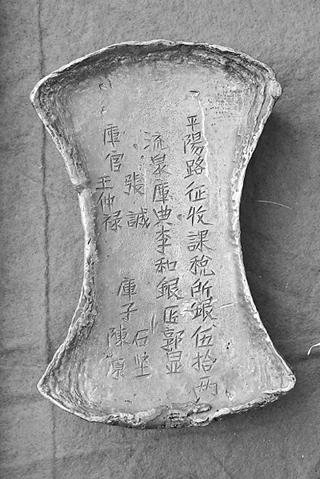 平陽路征收課税所銀伍拾兩
流泉庫典李和銀匠郭显
張誠
石坚
庫官王仲禄
庫子陳原